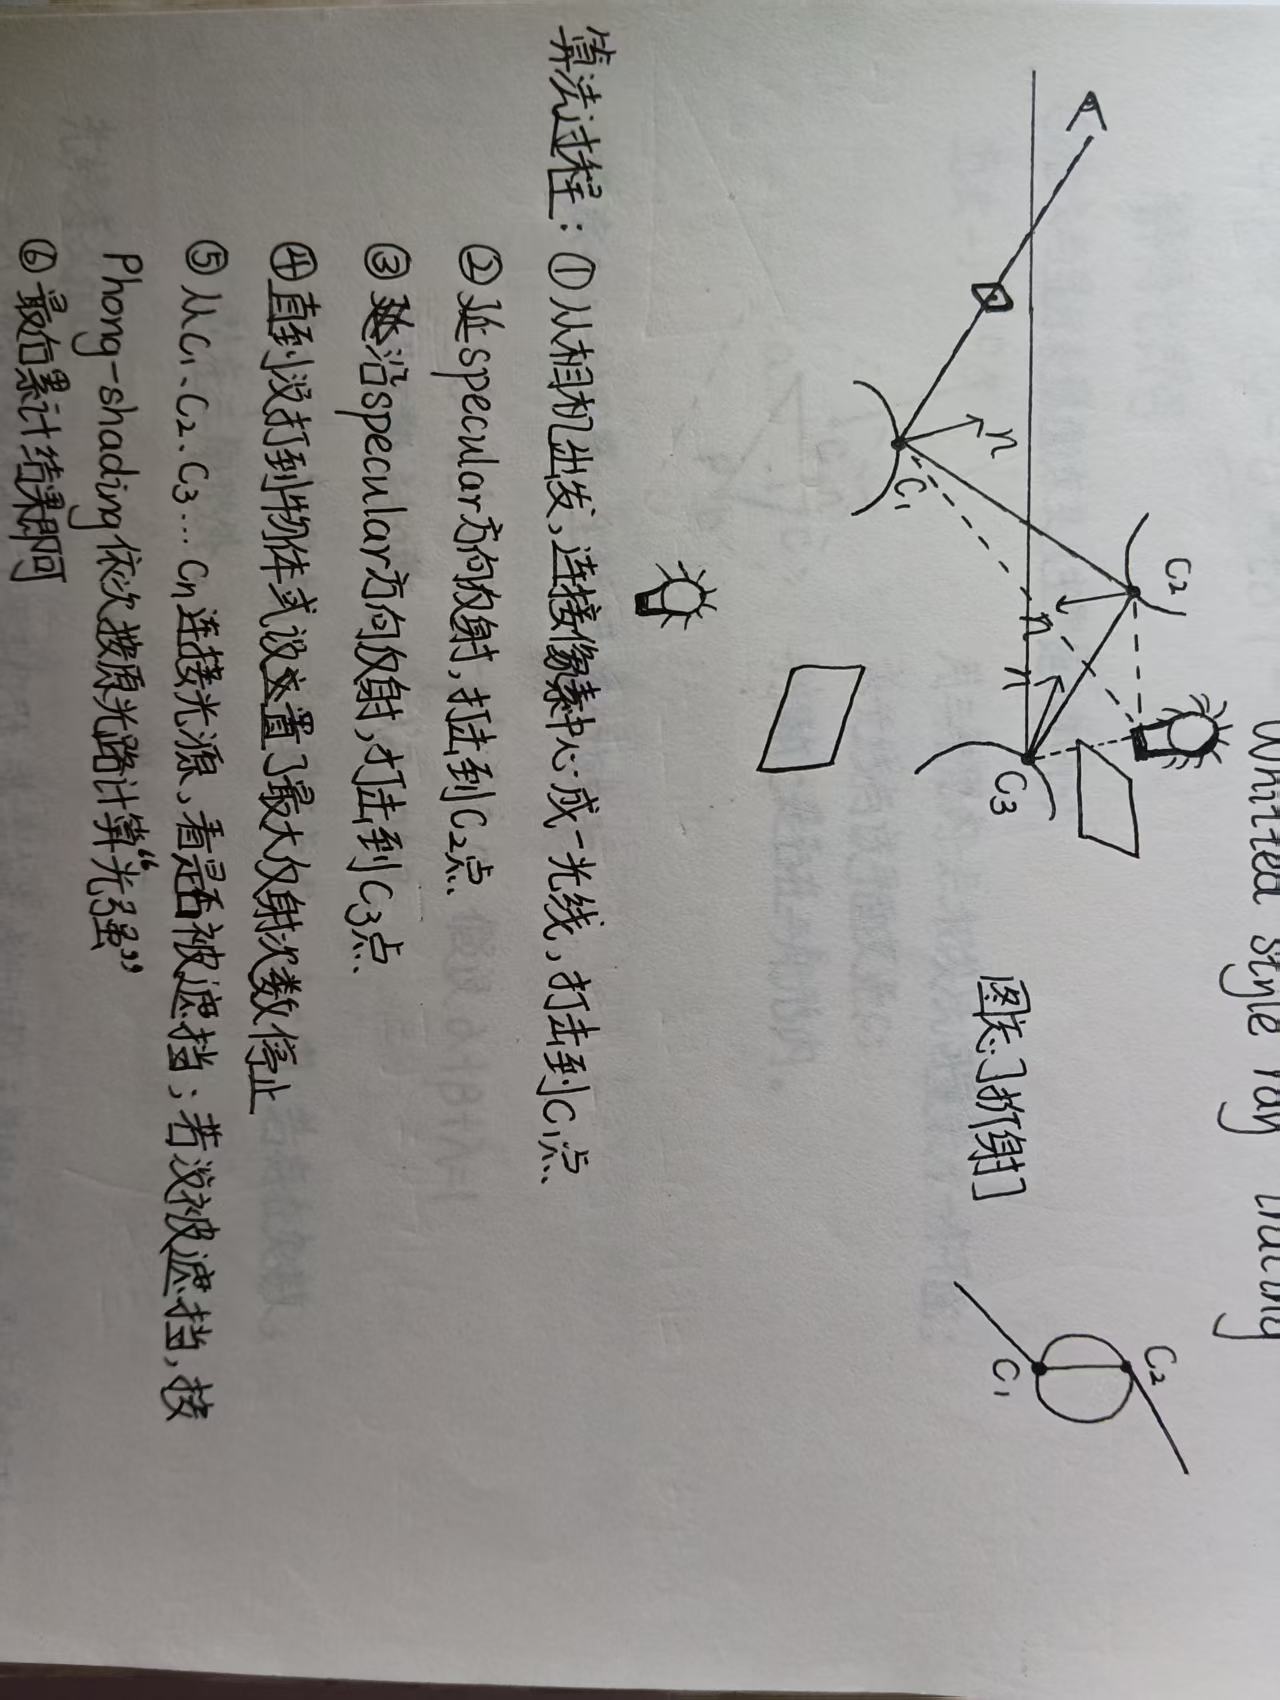 Whitted style ray tracing
C2
C2
n
n
C3
n
图忘了折射了
C1
C1
算法过程：①从相机出发，连接像素中心成一光线，打击到C1点.
②延specular方向反射，打击到C2点.
③沿specular方向反射，打击到C3点.
④直到没打到物体或设置了最大反射次数停止
⑤从C1、C2、C3…Cn连接光源，看是否被遮挡；若没被遮挡，按
Phong-shading依次按原光路计算“光强”
⑥最后累计结果即可